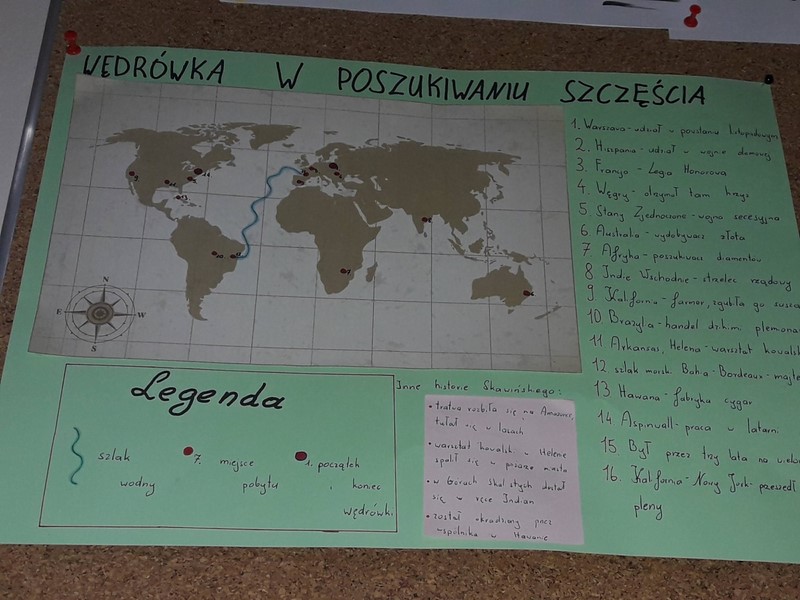 WĘDRÓWKA W POSZUKIWANIU SZCZĘŚCIA
1. Warszawa - udział w powstaniu listopadowym
2. Hiszpania - udział w wojnie domowej
3. Francja - Legia Honorowa
4. Węgry - otrzymał tam krzyż
5. Stany Zjednoczone - wojna secesyjna
6 Australia - wydobywacz złota
7. Afryka - poszukiwacz diamentów
8 Indie Wschodnie - strzelec rządowy
9. Kalifornia - farmer, zgubiła go susza
10. Brazylia - handel dzikimi plemiona
11 Arkansas, Helena - warsztat kowalsk
12 szlak morsk. Bahia - Bordeaux - majtek
13 Hawana - fabryka cygar
14 Aspinwall - praca w latarni
15 Był przez trzy lata na
16. Kalifornia - Nowy Jork - przeszedł
N
E W
S
Legenda
szlak
wodny
7. miejsce
pobytu
1. początek
i koniec
wędrówki
Inne historie Skawińskiego:
• tratwa rozbiła się na Amazonce,
tułał się w lasach
• warsztat kowalsk. w Helenie
spalił się w pożarze miasta
• w Górach Skalistych dostał
się w ręce Indian
• został okradziony przez
wspólnika w Hawanie